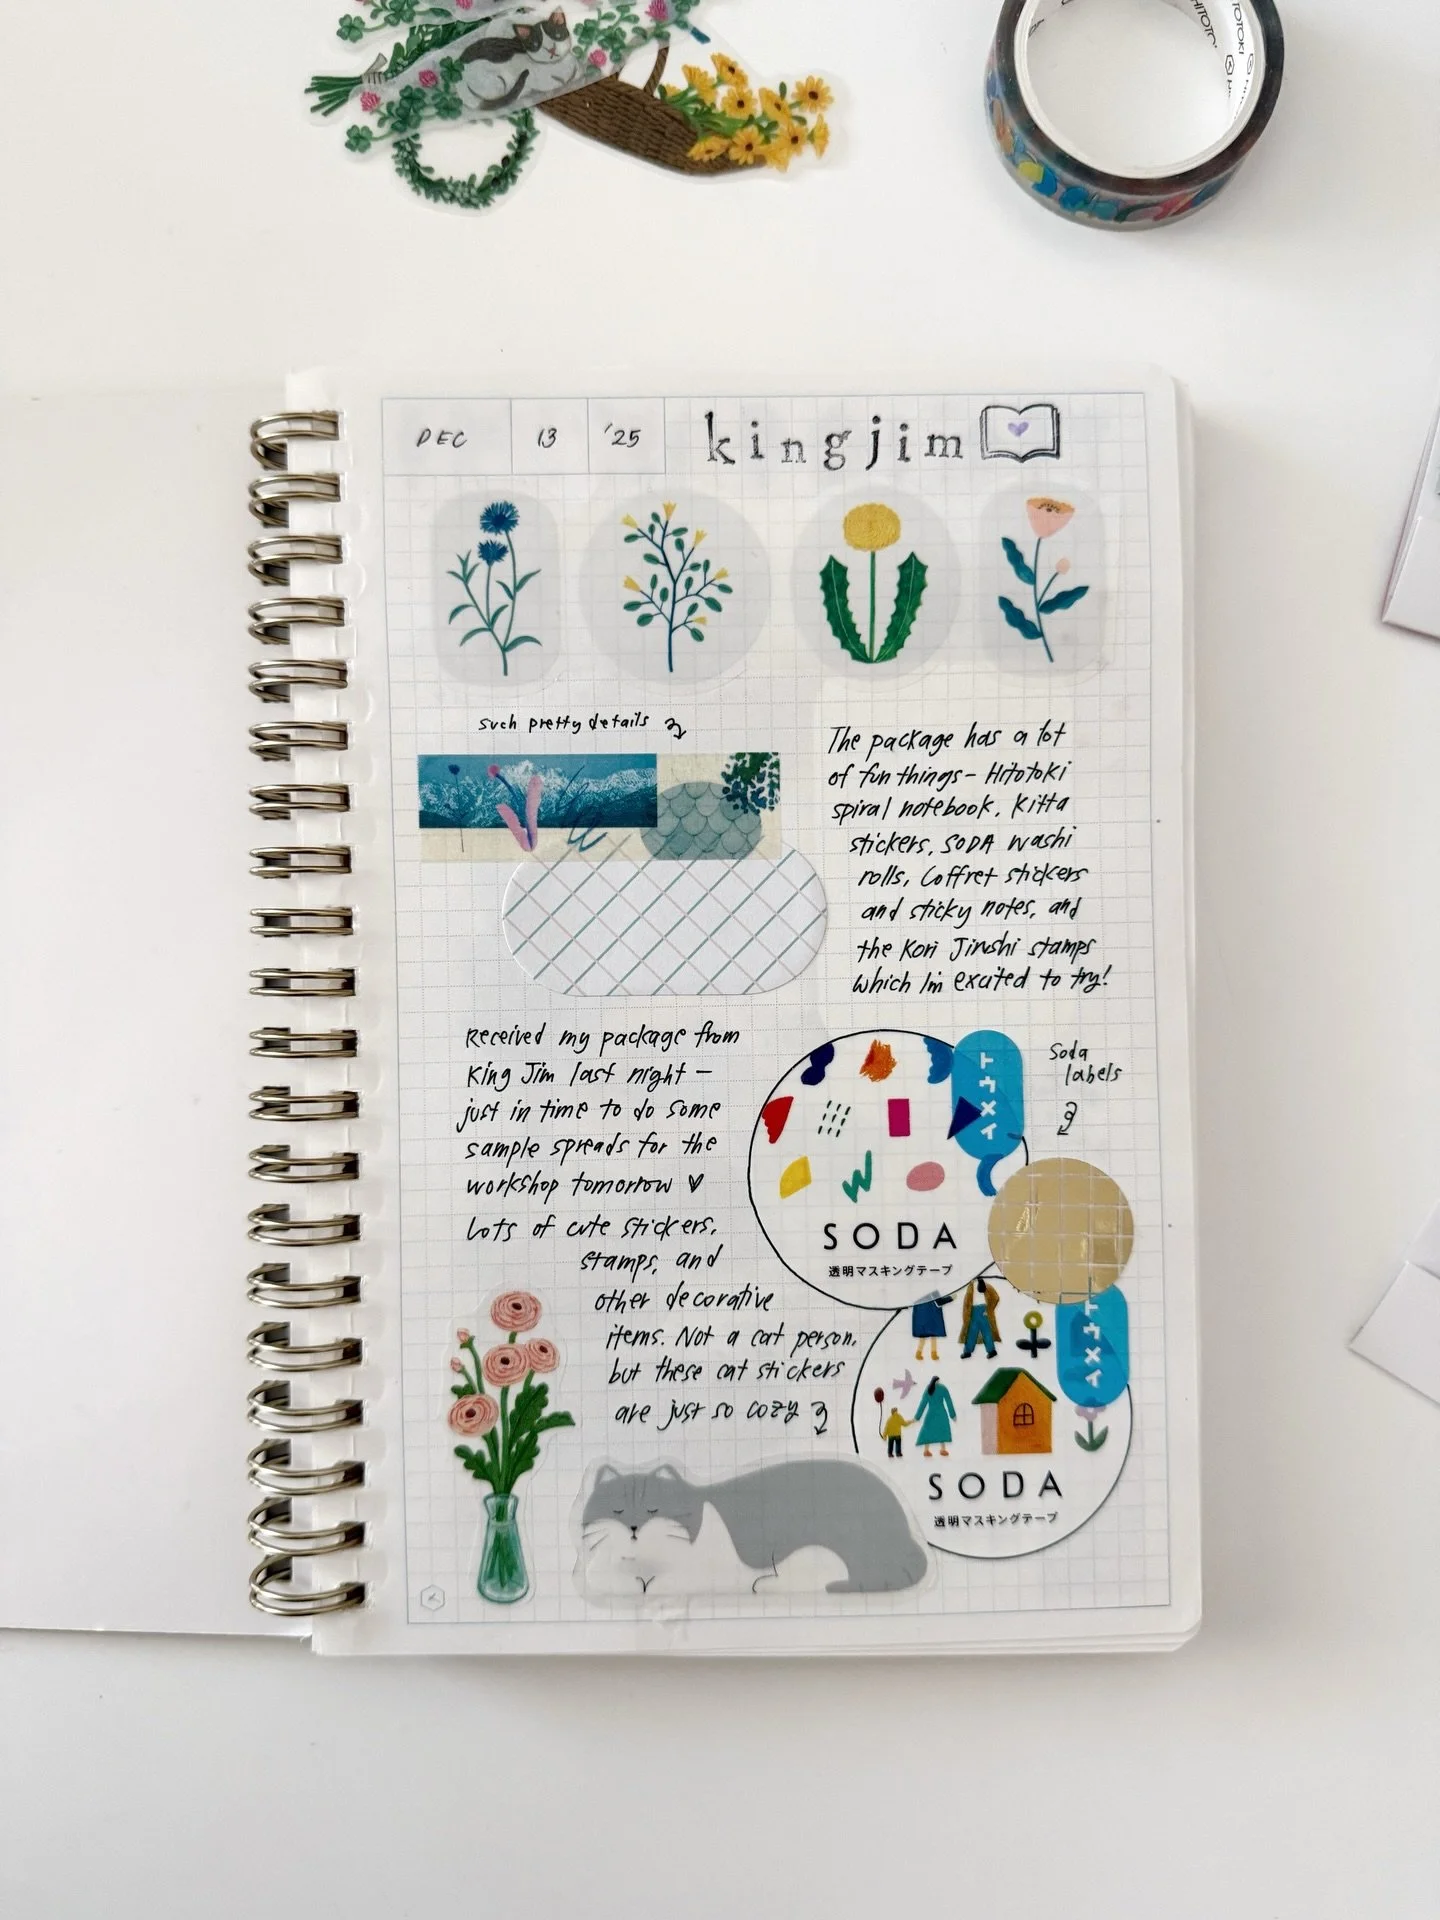 HITOTOKI
DEC 13 '25 kingjim
such pretty details
The package has a lot
of fun things- Hitotoki
spiral notebook, Kitta
stickers, SODA washi
rolls, Coffret stickers
and sticky notes, and
the Kori Jirushi stamps
which I'm excited to try!
Received my package from
King Jim last night —
just in time to do some
sample spreads for the
workshop tomorrow ♥
Lots of cute stickers,
stamps, and
other decorative
items. Not a cat person,
but these cat stickers
are just so cozy
トウメイ
Soda
labels
SODA
透明マスキングテープ
トウメイ
SODA
透明マスキングテープ